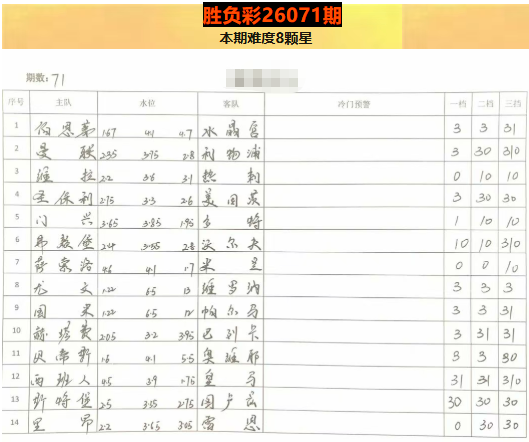 胜负彩26071期
本期难度8颗星
期数: 71
序号 主队 水位 客队 冷门预警 一档 二档 三档
1 伯恩茅 1.67 4.1 4.7 水晶宫 3 3 31
2 曼联 2.35 3.75 2.8 利物浦 3 30 310
3 维拉 2.2 3.6 3.1 热刺 0 10 10
4 圣保利 2.75 3.3 2.6 美因茨 3 30 30
5 门兴 3.65 3.85 1.95 多特 1 10 10
6 弗赖堡 2.4 3.55 2.8 沃尔夫 10 10 310
7 萨索洛 4.6 4.1 1.7 米兰 0 0 10
8 尤文 1.22 6.5 13 维罗纳 3 3 3
9 国米 1.22 6.5 12 帕尔马 3 3 31
10 赫塔费 2.05 3.2 3.95 巴列卡 3 31 31
11 贝蒂斯 1.6 4.1 5.5 奥维耶 3 3 30
12 西班人 4.5 3.9 1.75 皇马 31 31 310
13 斯特堡 2.5 3.55 2.75 图卢兹 30 30 30
14 里昂 2.2 3.65 3.05 雷恩 0 30 30